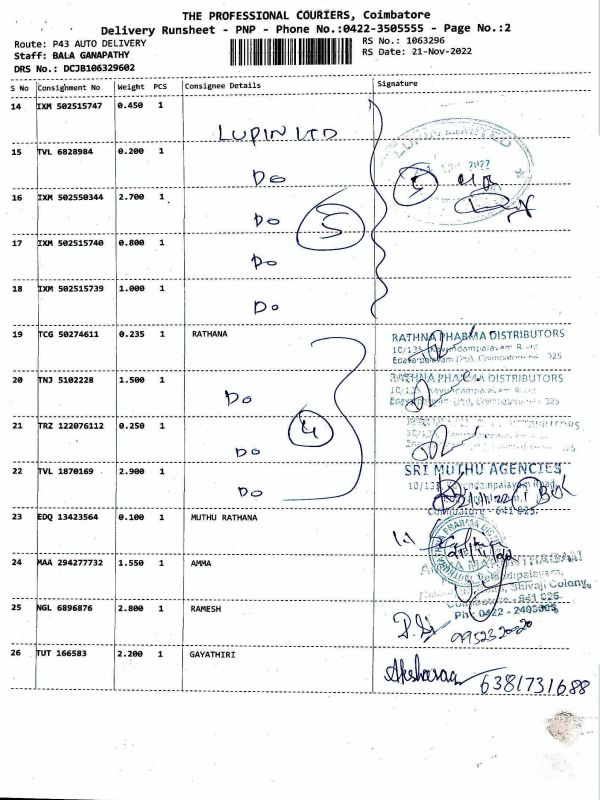 THE PROFESSIONAL COURIERS, Coimbatore
Delivery Runsheet - PNP - Phone No.:0422-3505555 - Page No.:2
Route: P43 AUTO DELIVERY
RS No.: 1063296
Staff: BALA GANAPATHY
RS Date: 21-Nov-2022
DRS No.: DCJB106329602
S No Consignment No Weight PCS Consignee Details Signature
14 IXM 502515747 0.450 1 LUPIN LTD
LUPIN LIMITED
2022
15 TVL 6828984 0.200 1 Do
5
16 IXM 502550344 2.700 1 Do
5
17 IXM 502515740 0.800 1 Do
18 IXM 502515739 1.000 1 Do
19 TCG 50274611 0.235 1 RATHANA
RATHNA PHARMA DISTRIBUTORS
20 TNJ 5102228 1.500 1 Do
RATHNA PHARMA DISTRIBUTORS
21 TRZ 122076112 0.250 1 Do
4
DISTRIBUTORS
22 TVL 1870169 2.900 1 Do
SRI MUTHU AGENCIES
Coimbatore - 641 025
23 EDQ 13423564 0.100 1 MUTHU RATHANA
24 MAA 294277732 1.550 1 AMMA
Shivaji Colony,
Coimbatore - 641 025
Ph: 0422 - 2403004
25 NGL 6896876 2.800 1 RAMESH
26 TUT 166583 2.200 1 GAYATHIRI
Aksharaa 6381731688